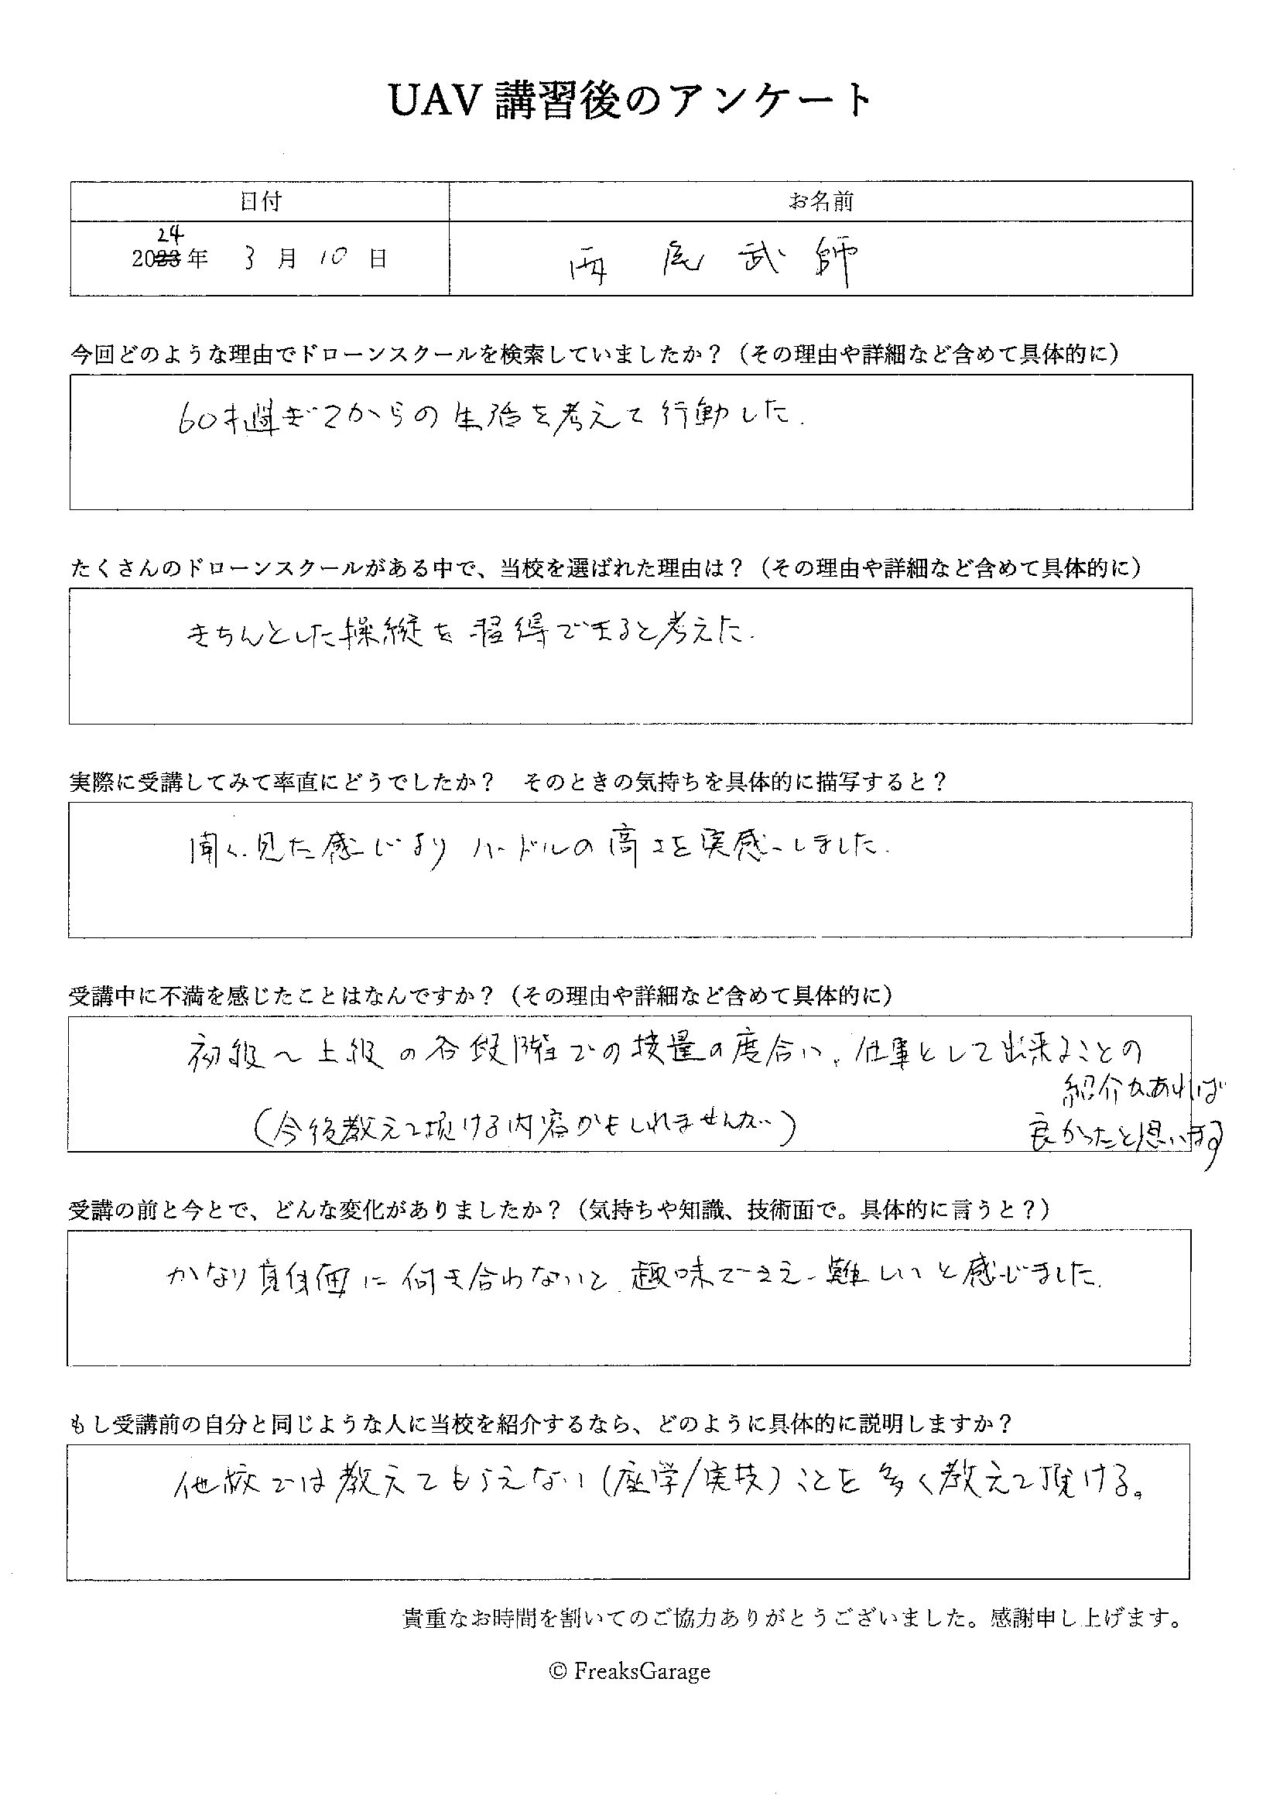 UAV 講習後のアンケート
日付
お名前
24
2023年 3月10日
尾 武 師
今回どのような理由でドローンスクールを検索していましたか？（その理由や詳細など含めて具体的に）
60才過ぎてからの生活を考えて行動した.
たくさんのドローンスクールがある中で、当校を選ばれた理由は？（その理由や詳細など含めて具体的に）
きちんとした操縦を習得できると考えた.
実際に受講してみて率直にどうでしたか？　そのときの気持ちを具体的に描写すると？
聞く、見た感じより ハードルの高さを実感しました.
受講中に不満を感じたことはなんですか？（その理由や詳細など含めて具体的に）
初級～上級の各段階での技量の度合い、仕事として出来ることの
紹介があれば
良かったと思います
（今後教えて頂ける内容かもしれませんが…）
受講の前と今とで、どんな変化がありましたか？（気持ちや知識、技術面で。具体的に言うと？）
かなり真剣に向き合わないと、趣味でさえ難しいと感じました.
もし受講前の自分と同じような人に当校を紹介するなら、どのように具体的に説明しますか？
他校では教えてもらえない（座学/実技）ことを多く教えて頂ける。
貴重なお時間を割いてのご協力ありがとうございました。感謝申し上げます。
© FreaksGarage